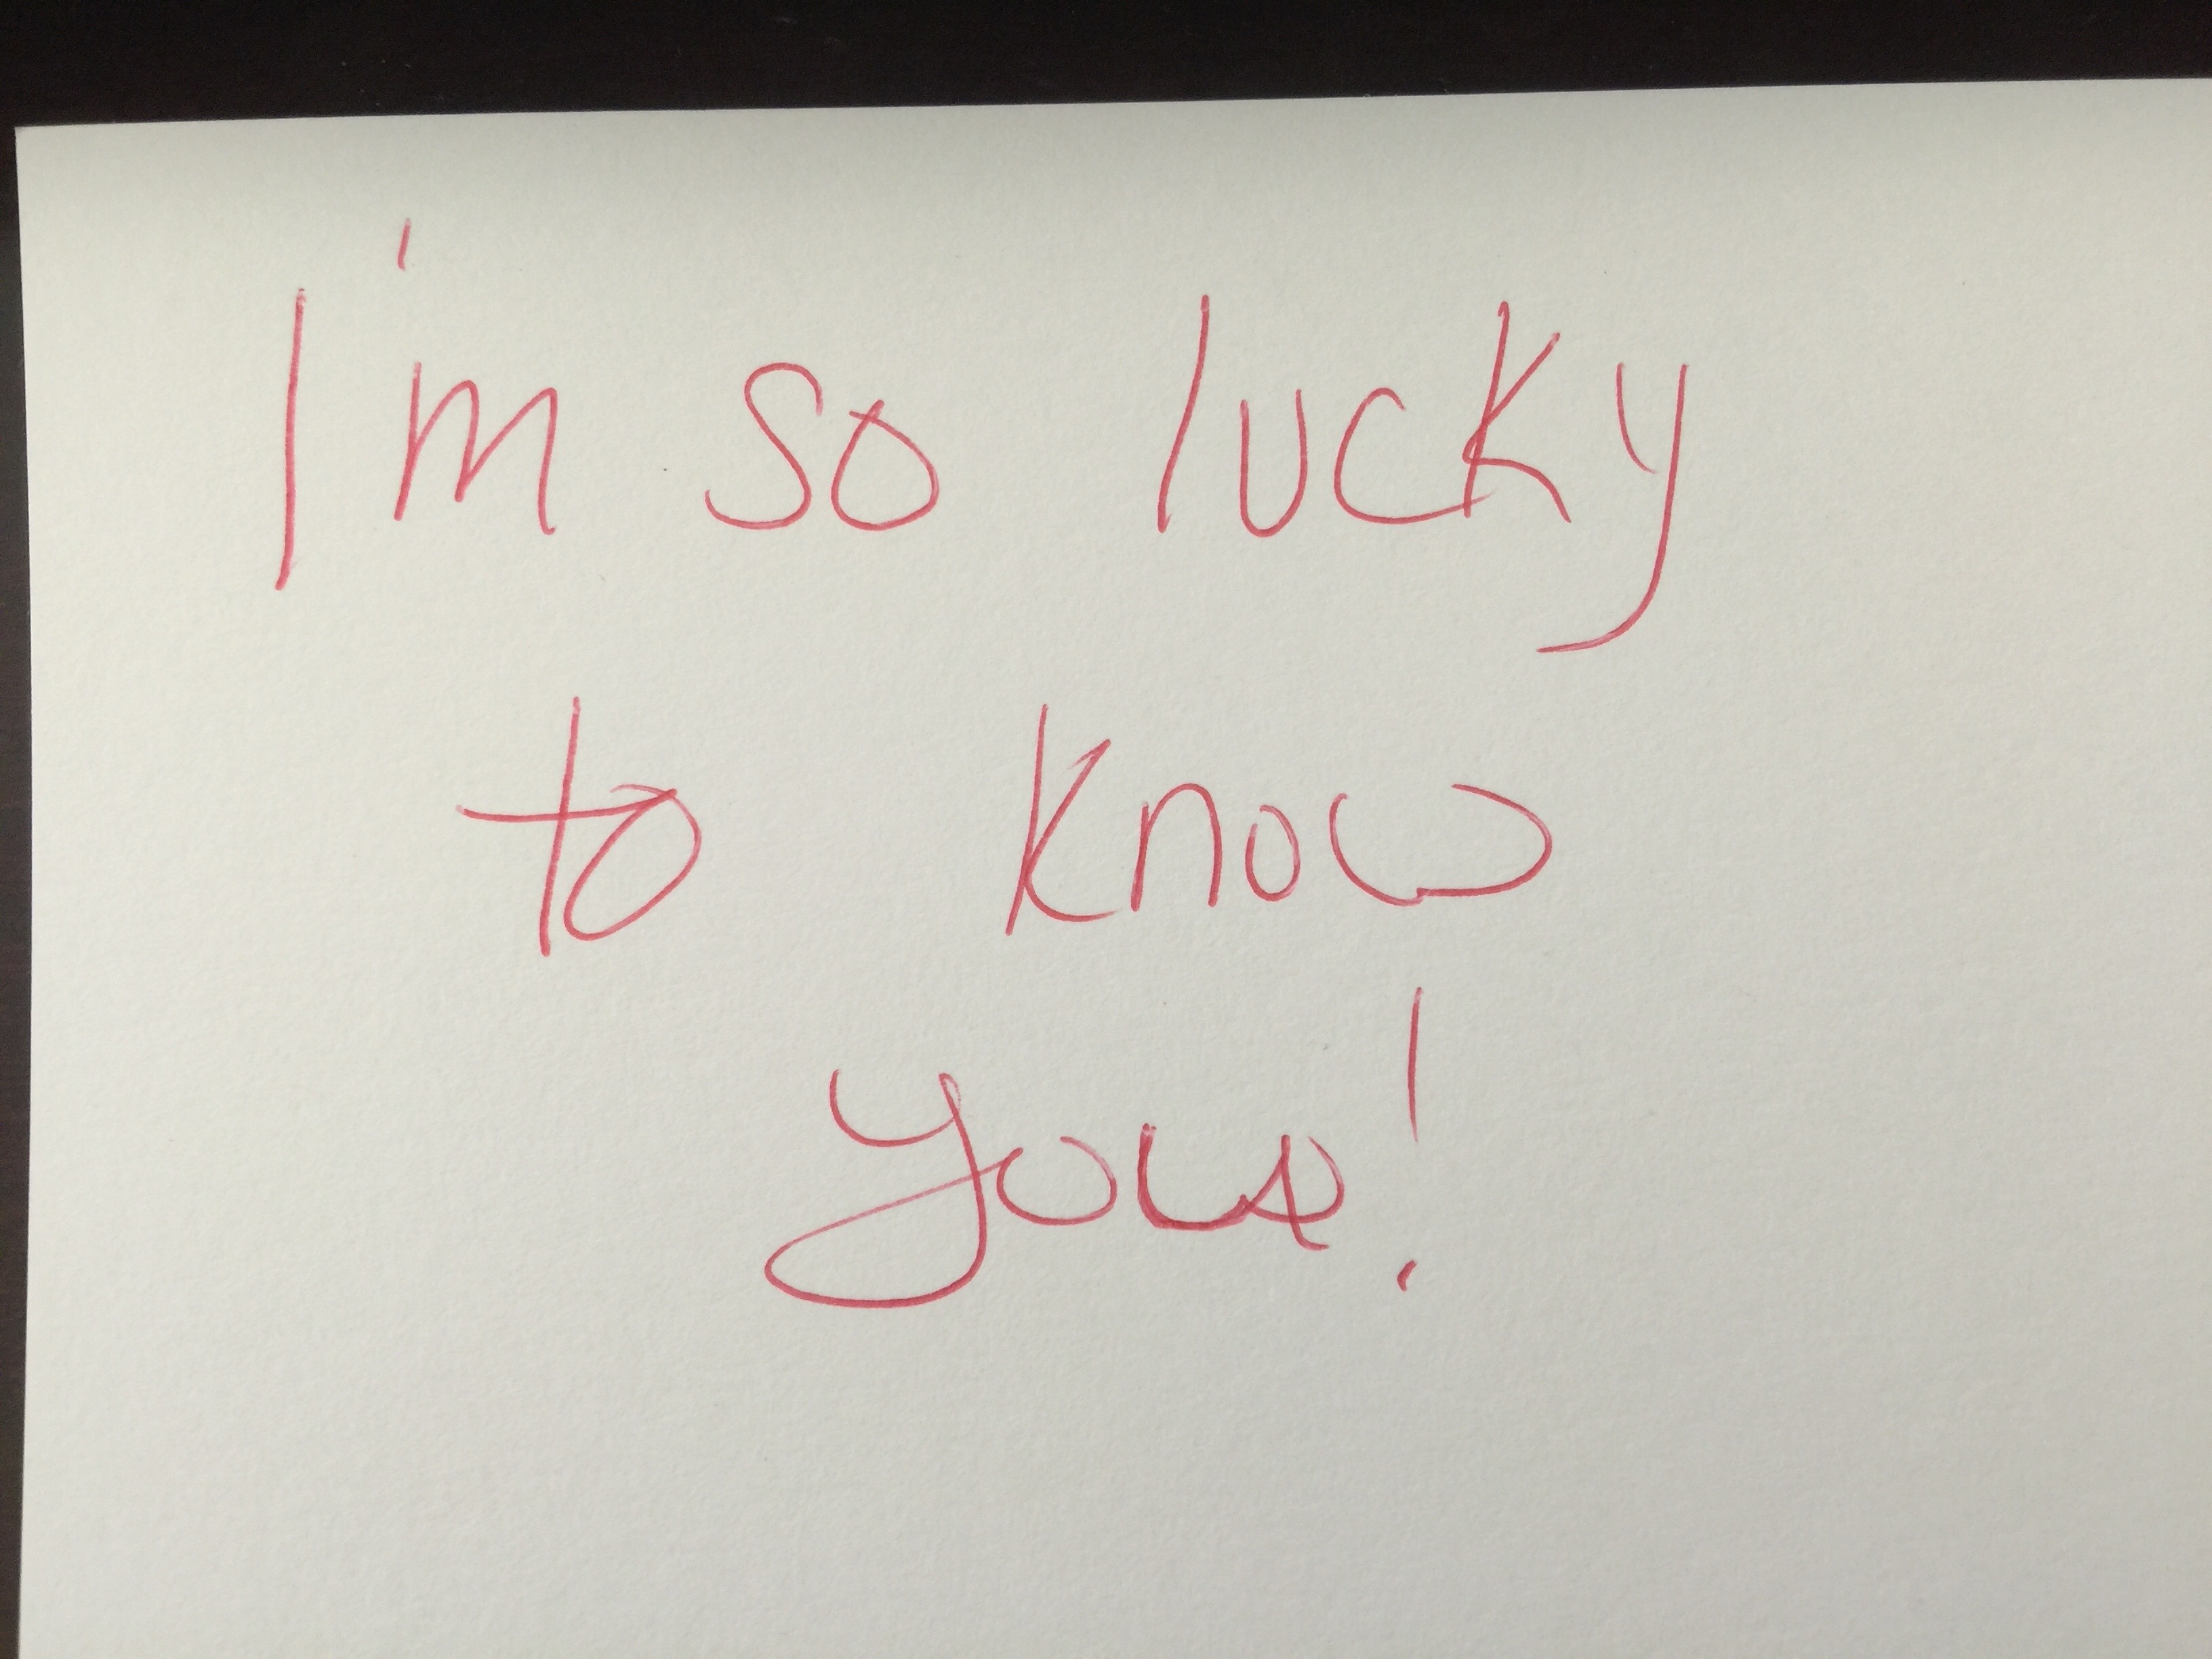 I'm so lucky
to know
you!